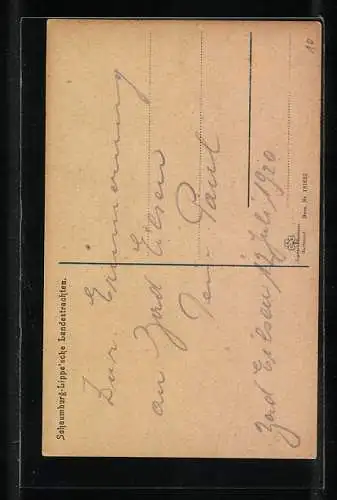 Schaumburg-Lippe'sche Landestrachten.
Zur Erinnerung
an Bad Eilsen
Dein Paul
Bad Eilsen, 12 Juli 1920
10